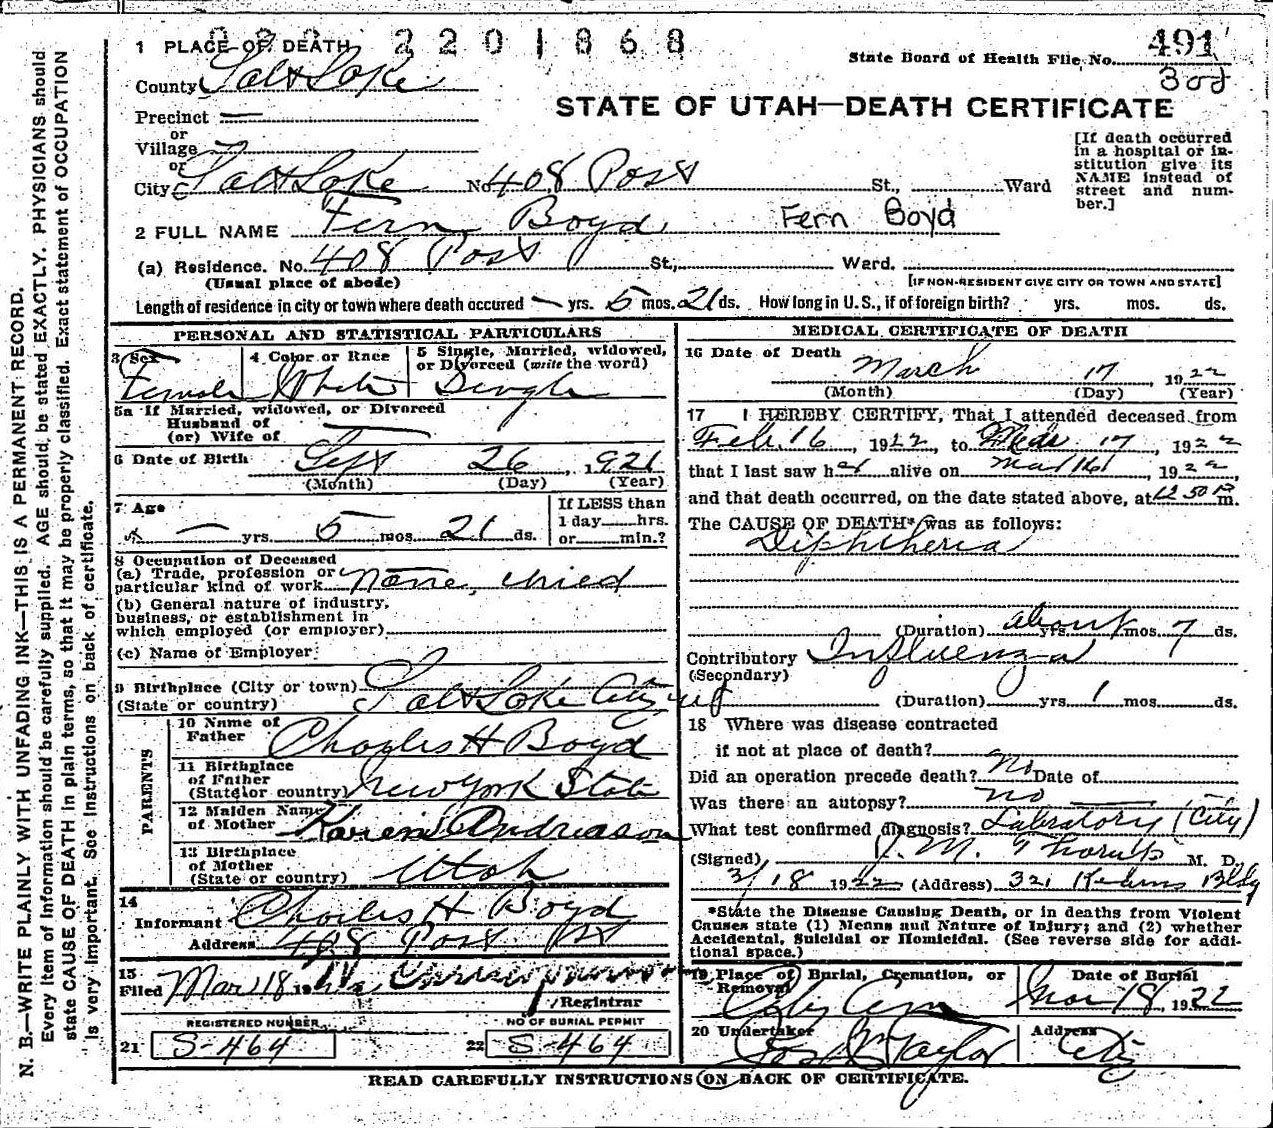 N. B.—WRITE PLAINLY WITH UNFADING INK—THIS IS A PERMANENT RECORD.
Every item of Information should be carefully supplied. AGE should be stated EXACTLY. PHYSICIANS should
state CAUSE OF DEATH in plain terms, so that it may be properly classified. Exact statement of OCCUPATION
is very important. See Instructions on back of certificate.
2201868
1 PLACE OF DEATH
County Salt Lake
State Board of Health File No. 491
STATE OF UTAH—DEATH CERTIFICATE
Precinct
or
Village
or
City Salt Lake No. 408 Post St., Ward
[If death occurred
in a hospital or in-
stitution give its
NAME instead of
street and num-
ber.]
2 FULL NAME Fern Boyd Fern Boyd
(a) Residence. No. 408 Post St., Ward.
(Usual place of abode) [IF NON-RESIDENT GIVE CITY OR TOWN AND STATE]
Length of residence in city or town where death occured — yrs. 5 mos. 21 ds. How long in U.S., if of foreign birth? yrs. mos. ds.
PERSONAL AND STATISTICAL PARTICULARS
3 Sex Female
4 Color or Race White
5 Single, Married, widowed,
or Divorced (write the word)
Single
5a If Married, widowed, or Divorced
Husband of
(or) Wife of
6 Date of Birth Sept 26, 1921
(Month) (Day) (Year)
7 Age
— yrs. 5 mos. 21 ds.
If LESS than
1 day hrs.
or min.?
8 Occupation of Deceased
(a) Trade, profession or
particular kind of work None, child
(b) General nature of industry,
business, or establishment in
which employed (or employer)
(c) Name of Employer
9 Birthplace (City or town)
(State or country) Salt Lake City ut
PARENTS
10 Name of
Father Charles H Boyd
11 Birthplace
of Father
(State or country) New York State
12 Maiden Name
of Mother Karen Andreason
13 Birthplace
of Mother
(State or country) Utah
14
Informant Charles H Boyd
Address 408 Post St
15
Filed Mar 18 19
Registrar
REGISTERED NUMBER
21 S-464
NO OF BURIAL PERMIT
22 S-464
MEDICAL CERTIFICATE OF DEATH
16 Date of Death
March 17, 1922
(Month) (Day) (Year)
17 I HEREBY CERTIFY, That I attended deceased from
Feb. 16, 1922, to Mar 17, 1922
that I last saw her alive on Mar 16, 1922
and that death occurred, on the date stated above, at 12 50 P m.
The CAUSE OF DEATH* was as follows:
Diphtheria
(Duration) about yrs. mos. 7 ds.
Contributory Influenza
(Secondary)
(Duration) yrs. 1 mos. ds.
18 Where was disease contracted
if not at place of death?
Did an operation precede death? no Date of
Was there an autopsy? no
What test confirmed diagnosis? Labratory (City)
(Signed) M. D.
3/18 1922 (Address) 321 Kearns Bldg
*State the Disease Causing Death, or in deaths from Violent
Causes state (1) Means and Nature of Injury; and (2) whether
Accidental, Suicidal or Homicidal. (See reverse side for addi-
tional space.)
19 Place of Burial, Cremation, or
Removal City Cem
Date of Burial
Mar 18, 1922
20 Undertaker
Jos Wm Taylor
Address
City
READ CAREFULLY INSTRUCTIONS ON BACK OF CERTIFICATE.